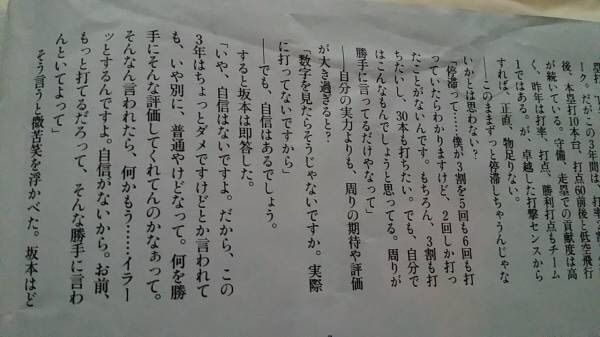 ーク。だが、この3年間は、打率2割
後、本塁打10本台、打点60前後と低空飛行
が続いている。守備、走塁での貢献度は高
く、昨年は打率、打点、勝利打点もチーム
1ではある。が、卓越した打撃センスから
すれば、正直、物足りない。
――このままずっと停滞しちゃうんじゃな
いかとは思わない?
「停滞って……僕が3割を5回も6回も打
っていたらわかりますけど、2回しか打っ
たことがないんです。もちろん、3割も打
ちたいし、30本も打ちたい。でも、自分で
はこんなもんでしょうと思ってる。周りが
勝手に言ってるだけやなって」
――自分の実力よりも、周りの期待や評価
が大き過ぎると?
「数字を見たらそうじゃないですか。実際
に打ってないですから」
――でも、自信はあるでしょう。
すると坂本は即答した。
「いや、自信はないですよ。だから、この
3年はちょっとダメですけどとか言われて
も、いや別に、普通やけどなって。何を勝
手にそんな評価してくれてんのかなぁって。
そんなん言われたら、何かもう……イラー
ッとするんですよ。自信がないから。お前、
もっと打てるだろって、そんな勝手に言わ
んといてよって」
そう言うと微苦笑を浮かべた。坂本はど